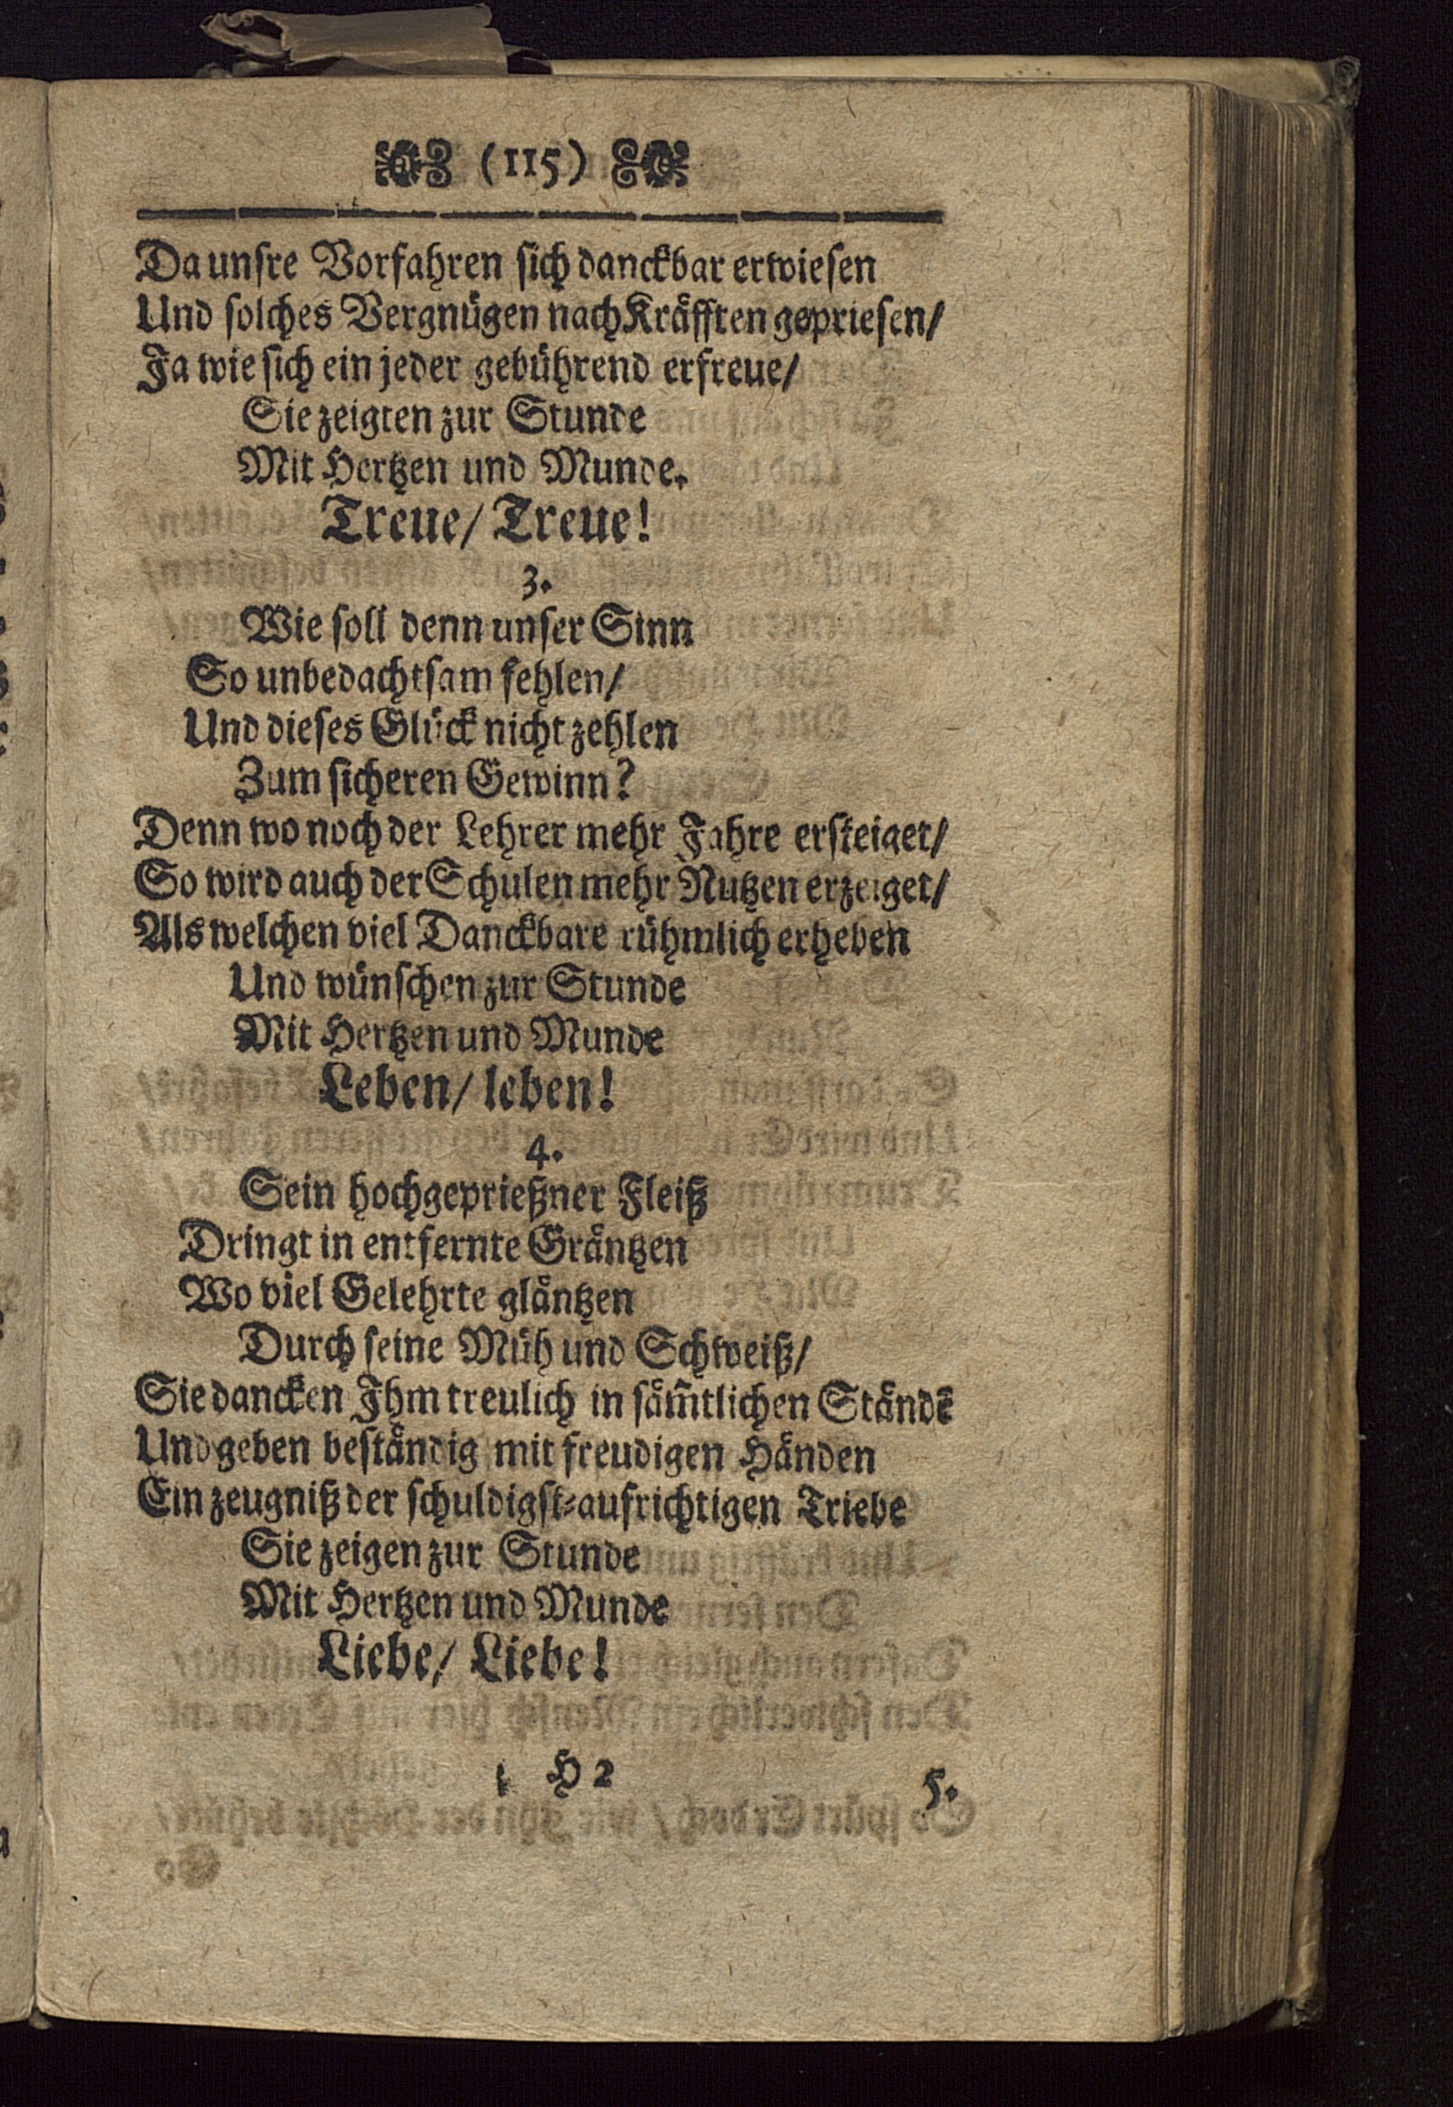 (115)
Da unsre Vorfahren sich danckbar erwiesen
Und solches Vergnügen nach Kräfften gepriesen/
Ja wie sich ein jeder gebührend erfreue/
Sie zeigten zur Stunde
Mit Hertzen und Munde.
Treue/ Treue!
3.
Wie soll denn unser Sinn
So unbedachtsam fehlen/
Und dieses Glück nicht zehlen
Zum sicheren Gewinn?
Denn wo noch der Lehrer mehr Jahre ersteiget/
So wird auch der Schulen mehr Nutzen erzeiget/
Als welchen viel Danckbare rühmlich erheben
Und wünschen zur Stunde
Mit Hertzen und Munde
Leben/ leben!
4.
Sein hochgeprießner Fleiß
Dringt in entfernte Gräntzen
Wo viel Gelehrte gläntzen
Durch seine Müh und Schweiß/
Sie dancken Ihm treulich in säm̃tlichen Ständẽ
Und geben beständig mit freudigen Händen
Ein zeugniß der schuldigst-aufrichtigen Triebe
Sie zeigen zur Stunde
Mit Hertzen und Munde
Liebe/ Liebe!
H 2
5.